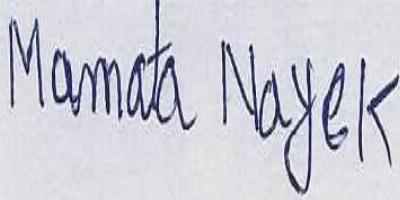 Mamata Nayek